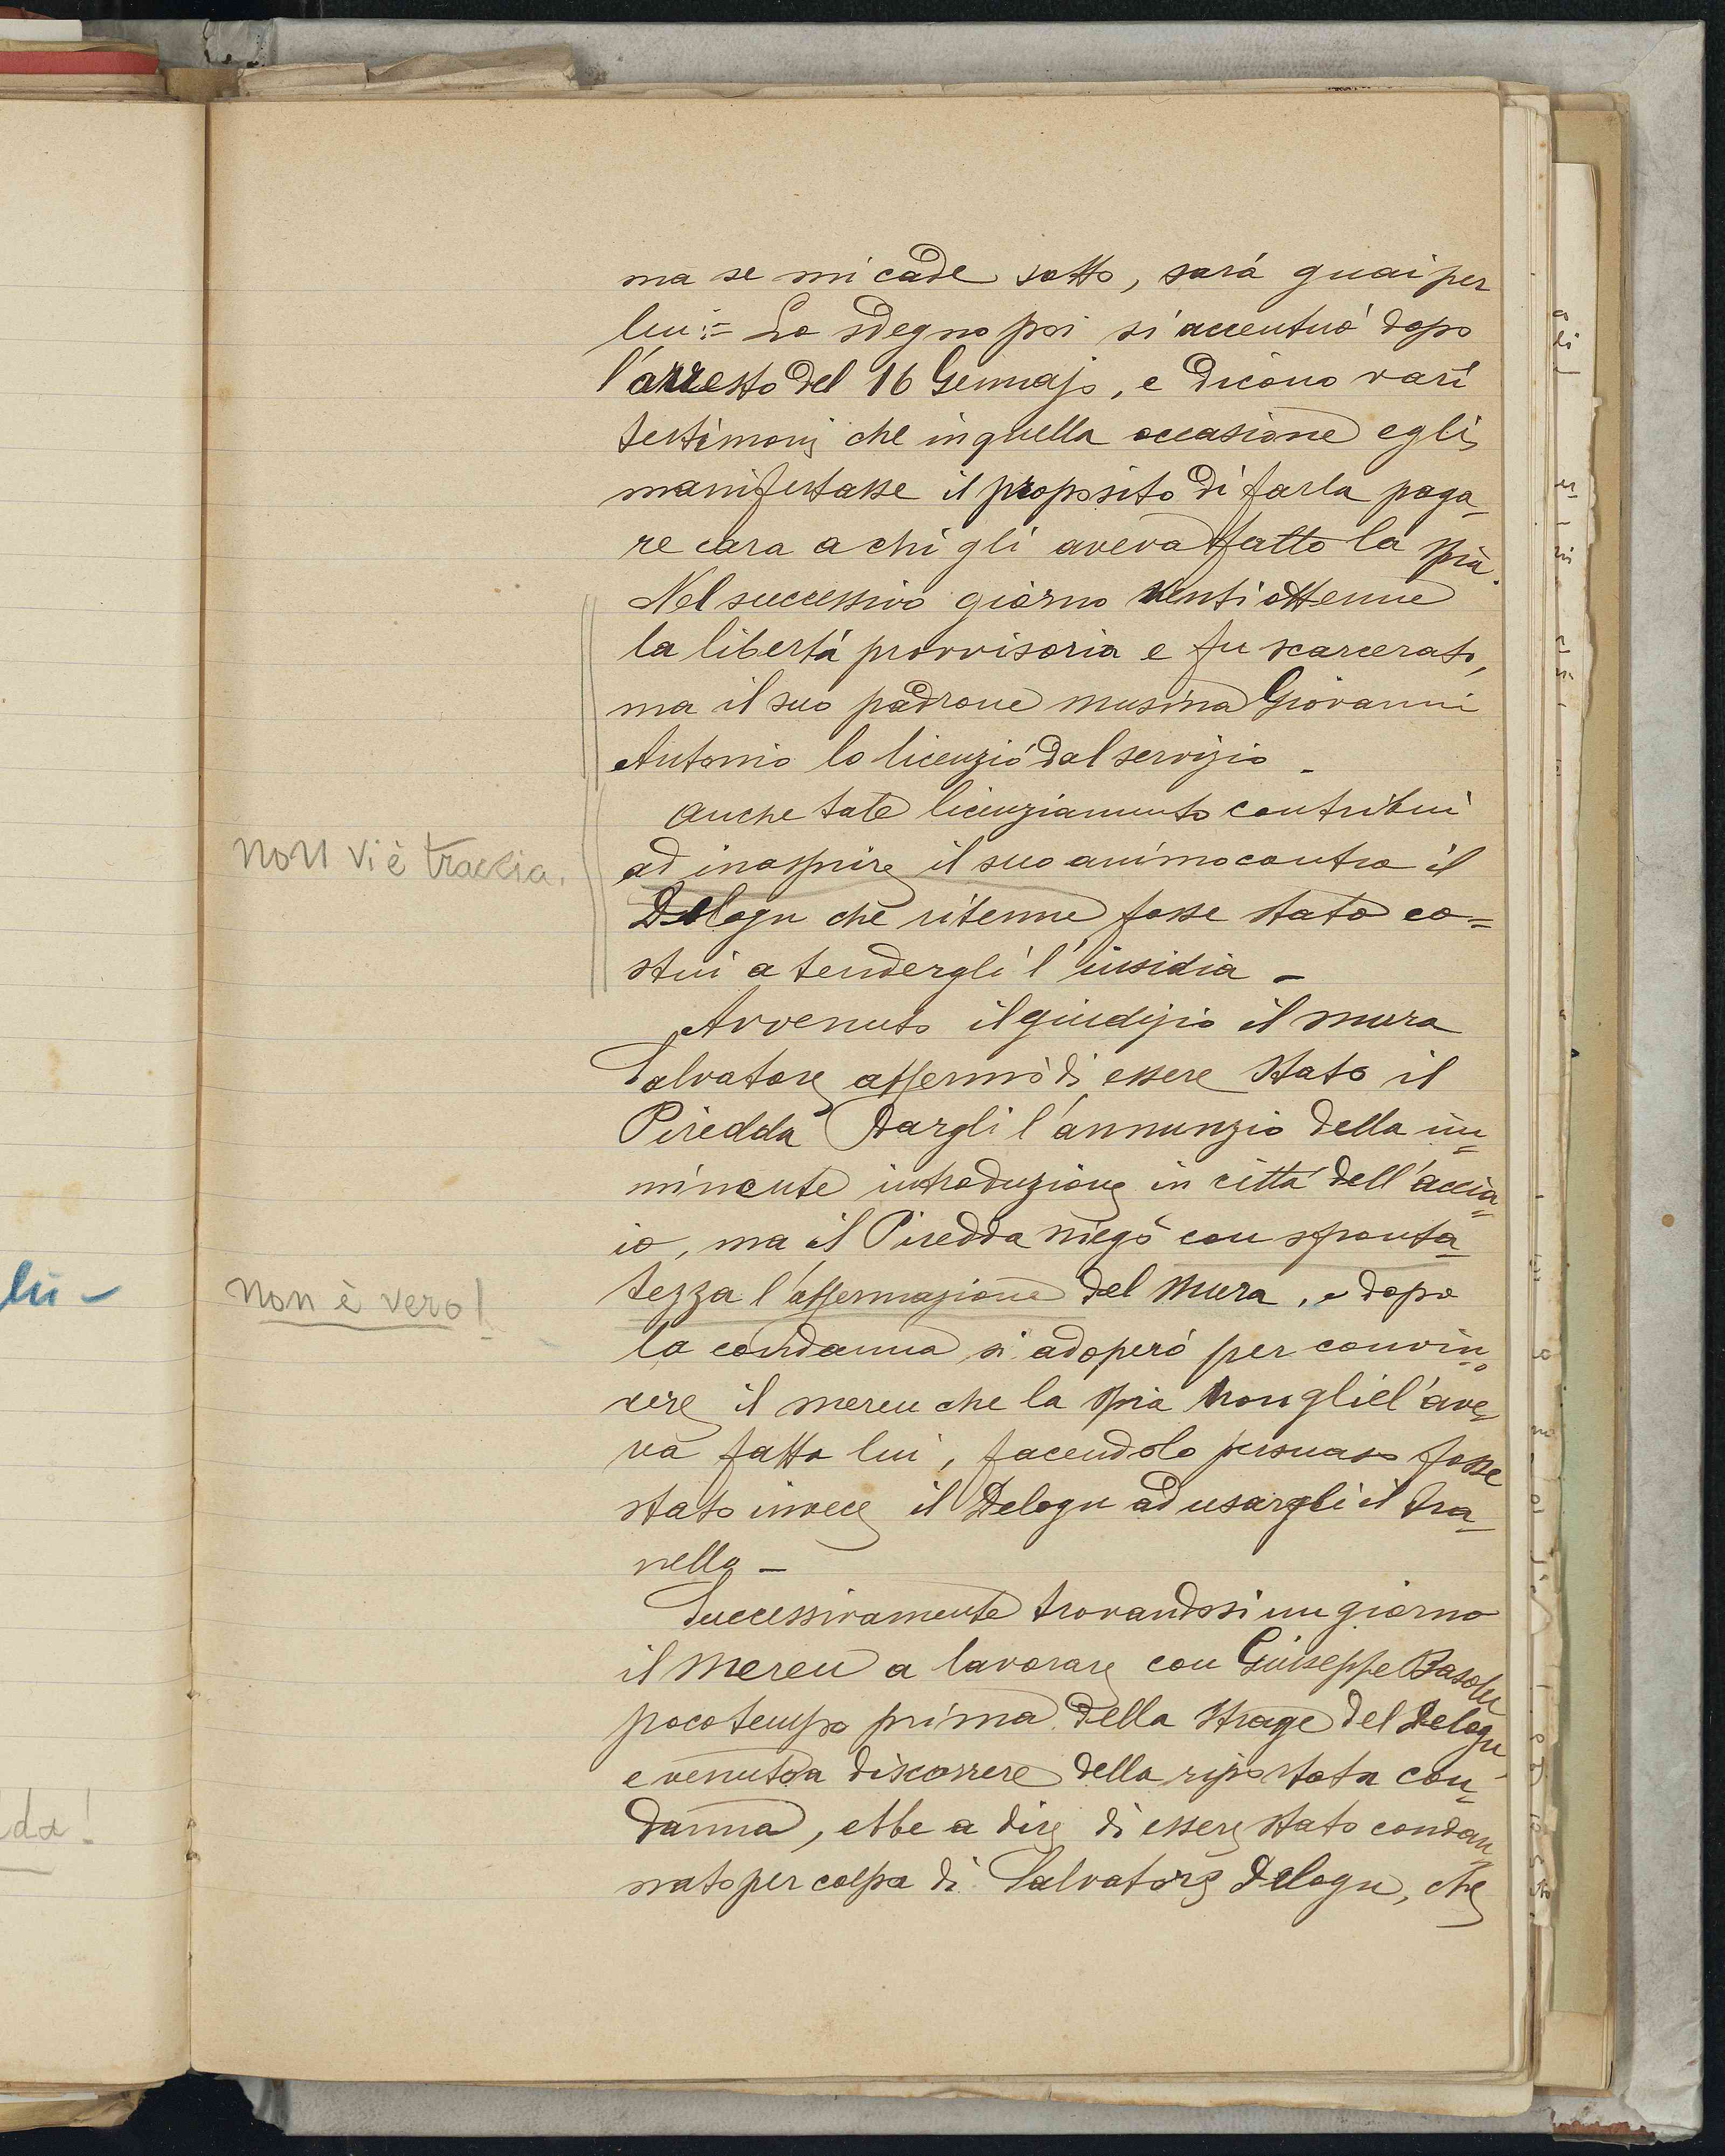 ma se mi cade sotto, sará guai per
lui := Lo sdegno poi si accentuó dopo
l'arresto del 16 Gennajo, e dicono vari
testimonj che in quella occasione egli
manifestasse il proposito di farla paga-
re cara a chi gli aveva fatto la spia.
Nel successivo giorno venti ottenne
la libertá provvisoria e fu scarcerato,
ma il suo padrone Musina Giovanni
Antonio lo licenzió dal servizio -
Anche tale licenziamento contribuí
non vi è traccia.
ad inasprire il suo animo contro il
Delogu che ritenne fosse stato co=
stui a tendergli l'insidia -
Avvenuto il giudizio il Mura
Salvatore affermò di essere stato il
Piredda a dargli l'annunzio della im=
minente introduzione in cittá dell'accia=
io, ma il Piredda negó con sfronta-
non è vero!
tezza l'affermazione del Mura, e dopo
la condanna si adoperó per convin=
cere il Mereu che la spia non gliel'ave-
va fatta lui, facendolo persuaso fosse
stato invece il Delogu ad usargli il tra-
nello -
Successivamente trovandosi un giorno
il Mereu a lavorare con Giuseppe Basolu
poco tempo prima della strage del Delogu,
e venuto a discorrere della riportata con=
danna, ebbe a dire di essere stato condan=
nato per colpa di Salvatore Delogu, che
lu -
da!